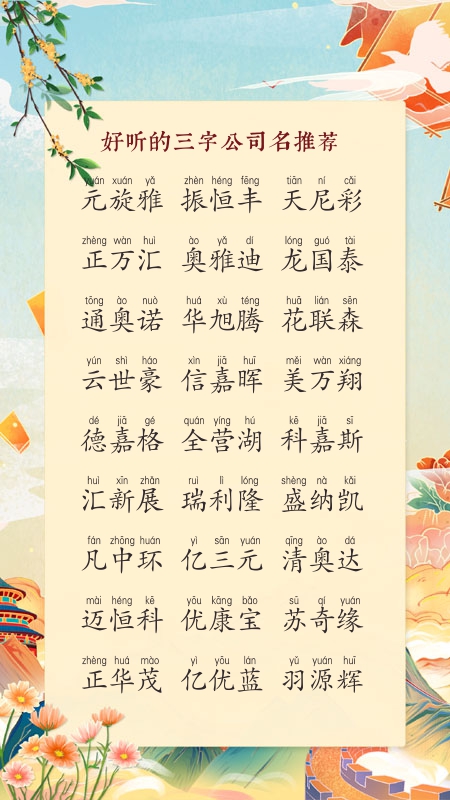 好听的三字公司名推荐
yuán xuán yǎ zhèn héng fēng tiān ní cǎi
元旋雅 振恒丰 天尼彩
zhèng wàn huì ào yǎ dí lóng guó tài
正万汇 奥雅迪 龙国泰
tōng ào nuò huá xù téng huā lián sēn
通奥诺 华旭腾 花联森
yún shì háo xìn jiā huī měi wàn xiáng
云世豪 信嘉晖 美万翔
dé jiā gé quán yíng hú kē jiā sī
德嘉格 全营湖 科嘉斯
huì xīn zhǎn ruì lì lóng shèng nà kǎi
汇新展 瑞利隆 盛纳凯
fán zhōng huán yì sān yuán qīng ào dá
凡中环 亿三元 清奥达
mài héng kē yōu kāng bǎo sū qí yuán
迈恒科 优康宝 苏奇缘
zhèng huá mào yì yōu lán yǔ yuán huī
正华茂 亿优蓝 羽源辉